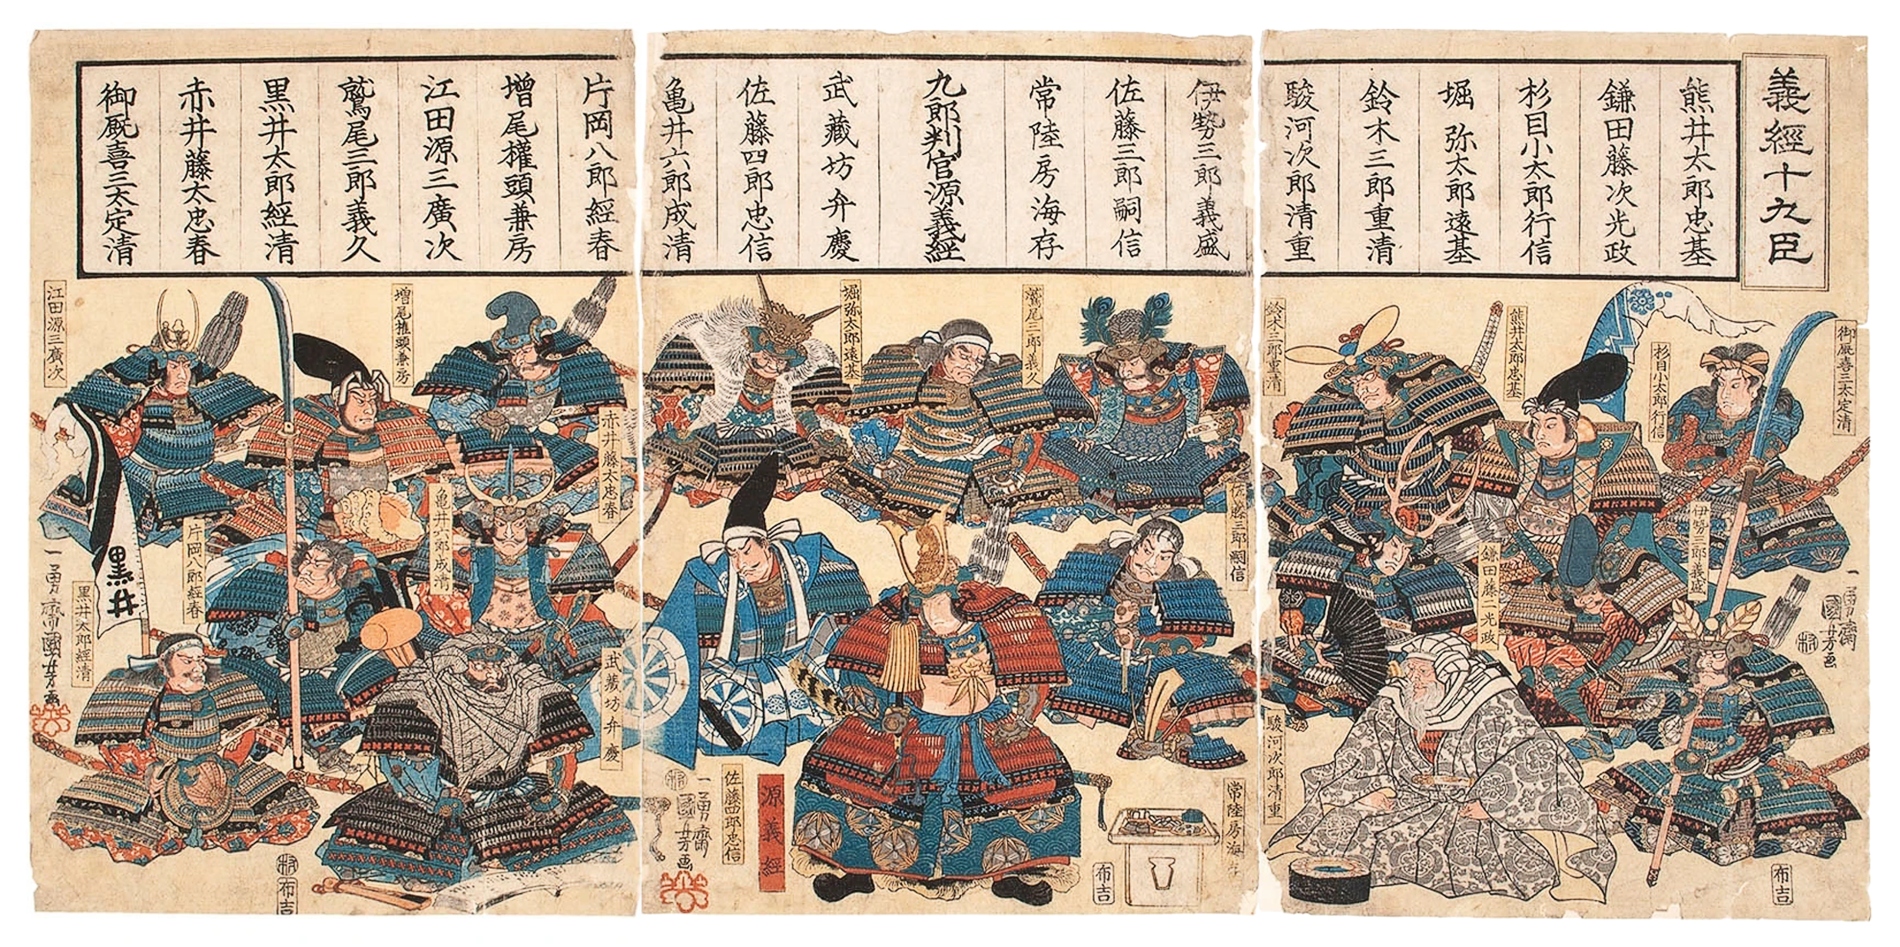 義經十九臣
熊井太郎忠基
鎌田藤次光政
杉目小太郎行信
堀弥太郎遠基
鈴木三郎重清
駿河次郎清重
伊勢三郎義盛
佐藤三郎嗣信
常陸房海存
九郎判官源義經
武藏坊弁慶
佐藤四郎忠信
亀井六郎成清
片岡八郎経春
増尾権頭兼房
江田源三廣次
鷲尾三郎義久
黒井太郎經清
赤井藤太忠春
御厩喜三太定清
御厩喜三太定清
杉目小太郎行信
熊井太郎忠基
鈴木三郎重清
伊勢三郎義盛
鎌田藤二光政
駿河次郎清重
一勇齋國芳画
布吉
鷲尾三郎義久
堀弥太郎遠基
佐藤三郎嗣信
常陸房海
源義經
佐藤四郎忠信
一勇齋國芳画
布吉
増尾権頭兼房
江田源三廣次
赤井藤太忠春
亀井六郎成清
片岡八郎経春
黒井
黒井太郎經清
武藏坊弁慶
一勇齋國芳画
布吉